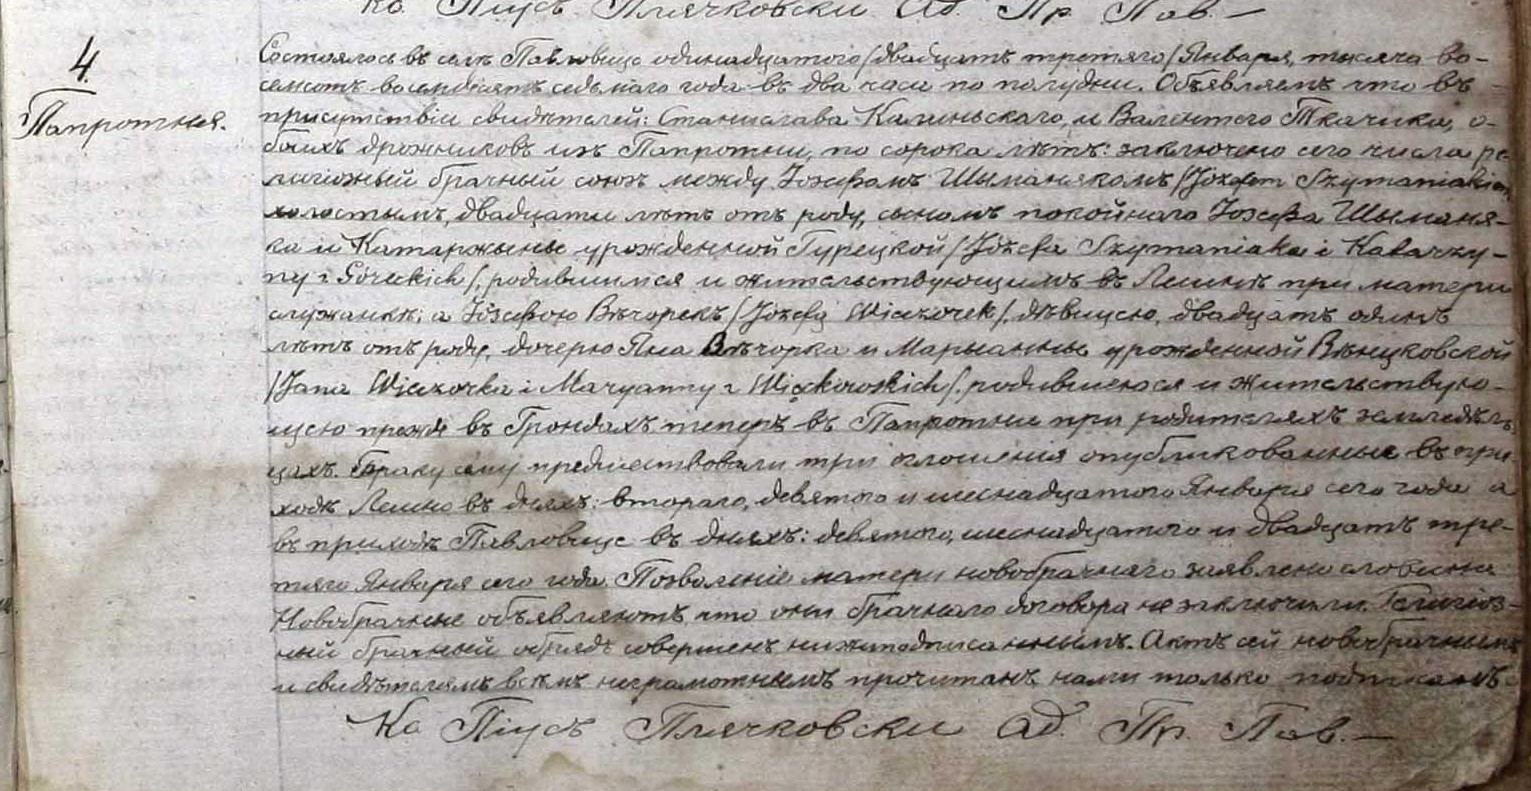 Ко. Піусъ Плячковски Ад. Пр. Пав.—
4.
Папротня.
Состоялось въ селѣ Павловице одинадцатого /двадцать третяго/ Января, тысяча во-
семсотъ восемдесятъ седьмаго года въ два часа по полудни. Объявляемъ что въ
присутствіи свидѣтелей: Станислава Калиньскаго, и Валентего Ткачика, о-
боихъ дрожниковъ изъ Папротни, по сорока лѣтъ: заключено сего числа ре-
лигіозный брачный союзъ между Іозефомъ Шыманякомъ /Józefem Szymaniakiem/
холостымъ, двадцати лѣтъ отъ роду, сыномъ покойнаго Іозефа Шыманя-
ка и Катаржыны урожденной Гурецкой /Józefa Szymaniaka i Katarzy-
ny z Góreckich/, родившимся и жительствующимъ въ Лешнѣ при матери
служанкѣ; а Іозефою Вѣчорекъ /Józefą Wieczorek/, дѣвицею, двадцать одинъ
лѣтъ отъ роду, дочерю Яна Вѣчорка и Марыанны урожденной Вѣнцковской
/Jana Wieczorka i Maryanny z Więckowskich/, родившеюся и жительствую-
щею прежде въ Грондахъ теперъ въ Папротни при родителяхъ земледѣль-
цахъ. Браку сему предшествовали три оглошенія опубликованные въ при-
ходѣ Лешно въ дняхъ: втораго, девятого и шеснадцатого Января сего года а
въ приходѣ Павловице въ дняхъ: девятого, шеснадцатого и двадцать тре-
тяго Января сего года. Позволеніе матери новобрачнаго заявлено словесно
Новобрачные объявляютъ что они брачнаго договора не заключили. Религіоз-
ный брачный обрядъ совершенъ нижеподписаннымъ. Актъ сей новобрачнымъ
и свидѣтелямъ всѣмъ неграмотнымъ прочитанъ, нами только подписанъ
Ко Піусъ Плячковски Ад. Пр. Пав.—